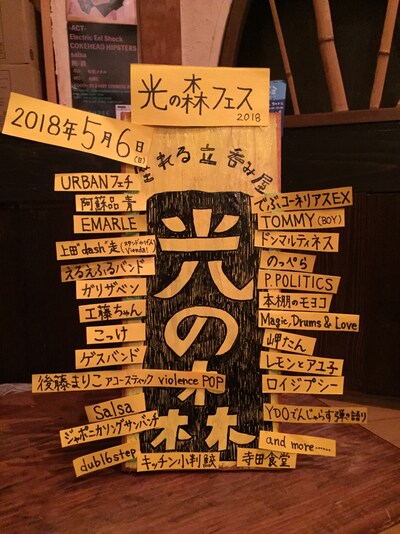 -ACT-
Electric Eel Shock
COKEHEAD HIPSTERS
salsa
光の森フェス
2018
2018年5月6日(日)
れる立呑み屋
光の森
URBANフェチ
阿蘇品 青
EMARLE
上田"dash"走
えるえふるバンド
ガリザベン
工藤ちゃん
こっけ
ゲスバンド
後藤まりこアコースティック violence POP
Salsa
ジャポニカソングサンバンチ
dub16step
でぶコーネリアスEX
TOMMY(BOY)
ドンマルティネス
のっぺら
P.POLITICS
本棚のモヨコ
Magic, Drums & Love
岬たん
レモンとアユ子
ロイジプシー
YDOでんじゃらす弾き語り
and more......
キッチン小判鮫
寺田食堂